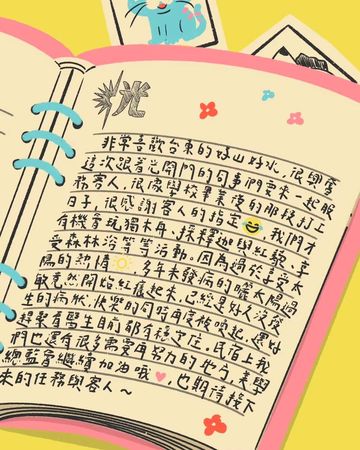 光
非常喜歡台東的好山好水，很興奮
這次跟著光開門的同事們要來一起服
務客人，很像學校畢業後的那種打工
日子，很感謝客人的指定😄，我們才
有機會玩獨木舟、採釋迦與紅藜、享
受森林浴等等活動。因為過於享受太
陽的熱情🌞，多年未發病的曬太陽過
敏竟然開始紅癢起來，已經是好久沒發
生的病狀，快樂的同時再度被喚起，還好
趕緊看醫生目前都有穩定住，民宿上我
們也還有很多需要再努力的地方，美學
總監會繼續加油哦❤，也期待接下
來的任務與客人～